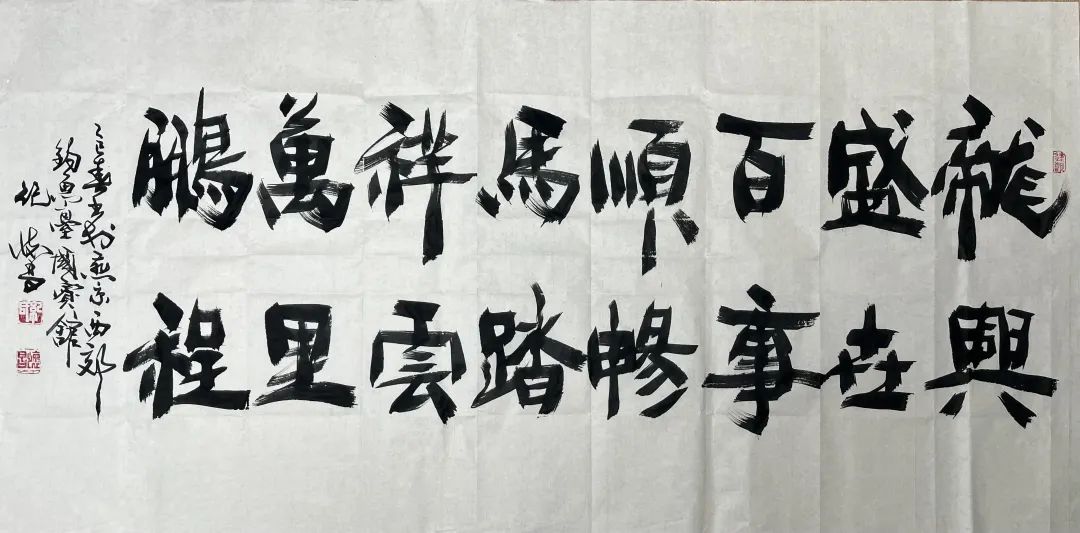 龍興
盛世
百事
順暢
馬踏
祥雲
萬里
鵬程
乙巳春书於燕京西郊
钓鱼臺國賓館
纪